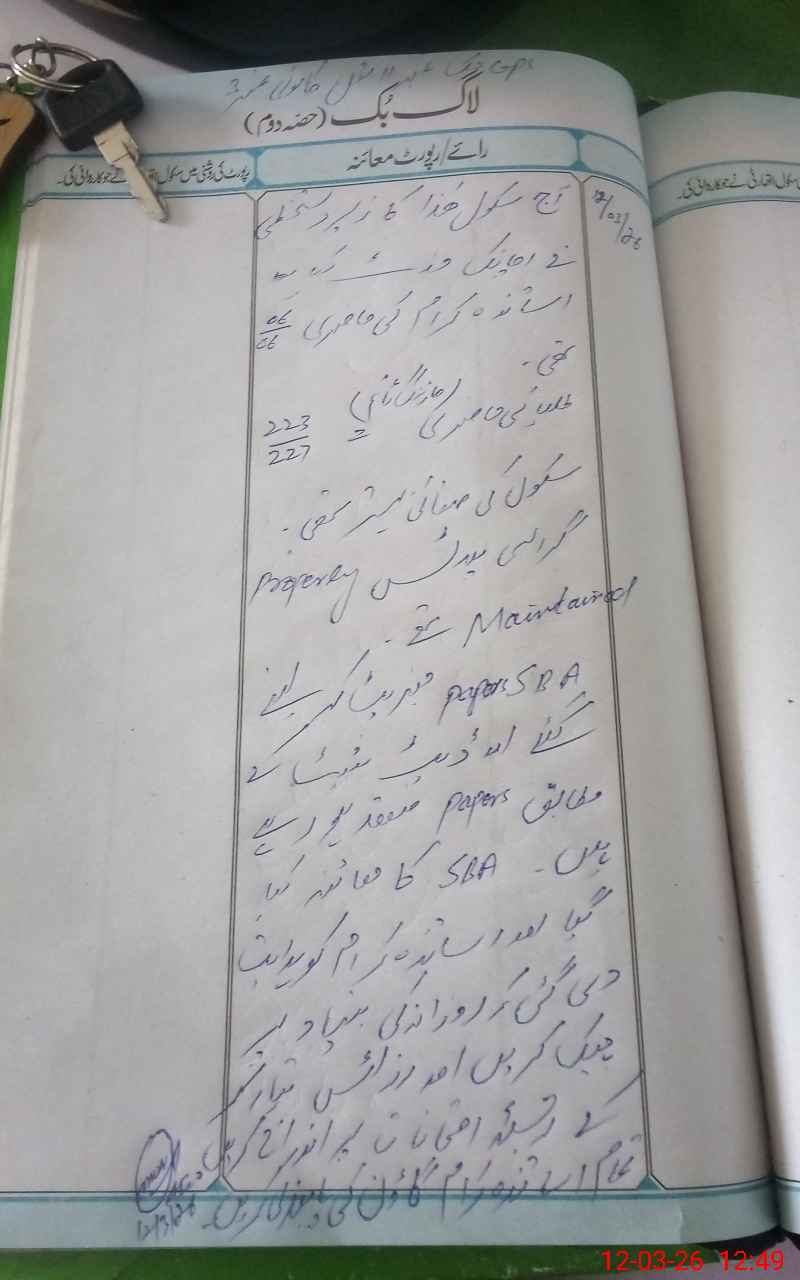 لاگ بُک (حصّہ دوم)
رائے/رپورٹ معائنہ
رپورٹ کی روشنی میں سکول اتھارٹی نے جو کاروائی کی۔
سکول اتھارٹی نے جو کاروائی کی۔
12/03/26
آج سکول ھٰذا کا زیر دستخطی
نے اچانک وزٹ کیا
اساتذہ کرام کی حاضری 06/06
تھی۔
طلباء کی حاضری 223/227
سکول کی صفائی بہتر تھی۔
گراسی پلاٹس Properly
Maintained تھے۔
SBA papers پرنٹ کر لئے
گئے اور ڈیٹ شیٹ کے
مطابق papers منعقد ہو رہے
ہیں۔ SBA کا معائنہ کیا
گیا اور اساتذہ کرام کو ہدایت
دی گئی کہ روزانہ کی بنیاد پر
چیک کریں اور رزلٹس تیار کر
کے رجسٹر امتحانات پر اندراج کریں
تمام اساتذہ کرام گاؤن کی پابندی کریں۔
12/3/26
12-03-26 12:49